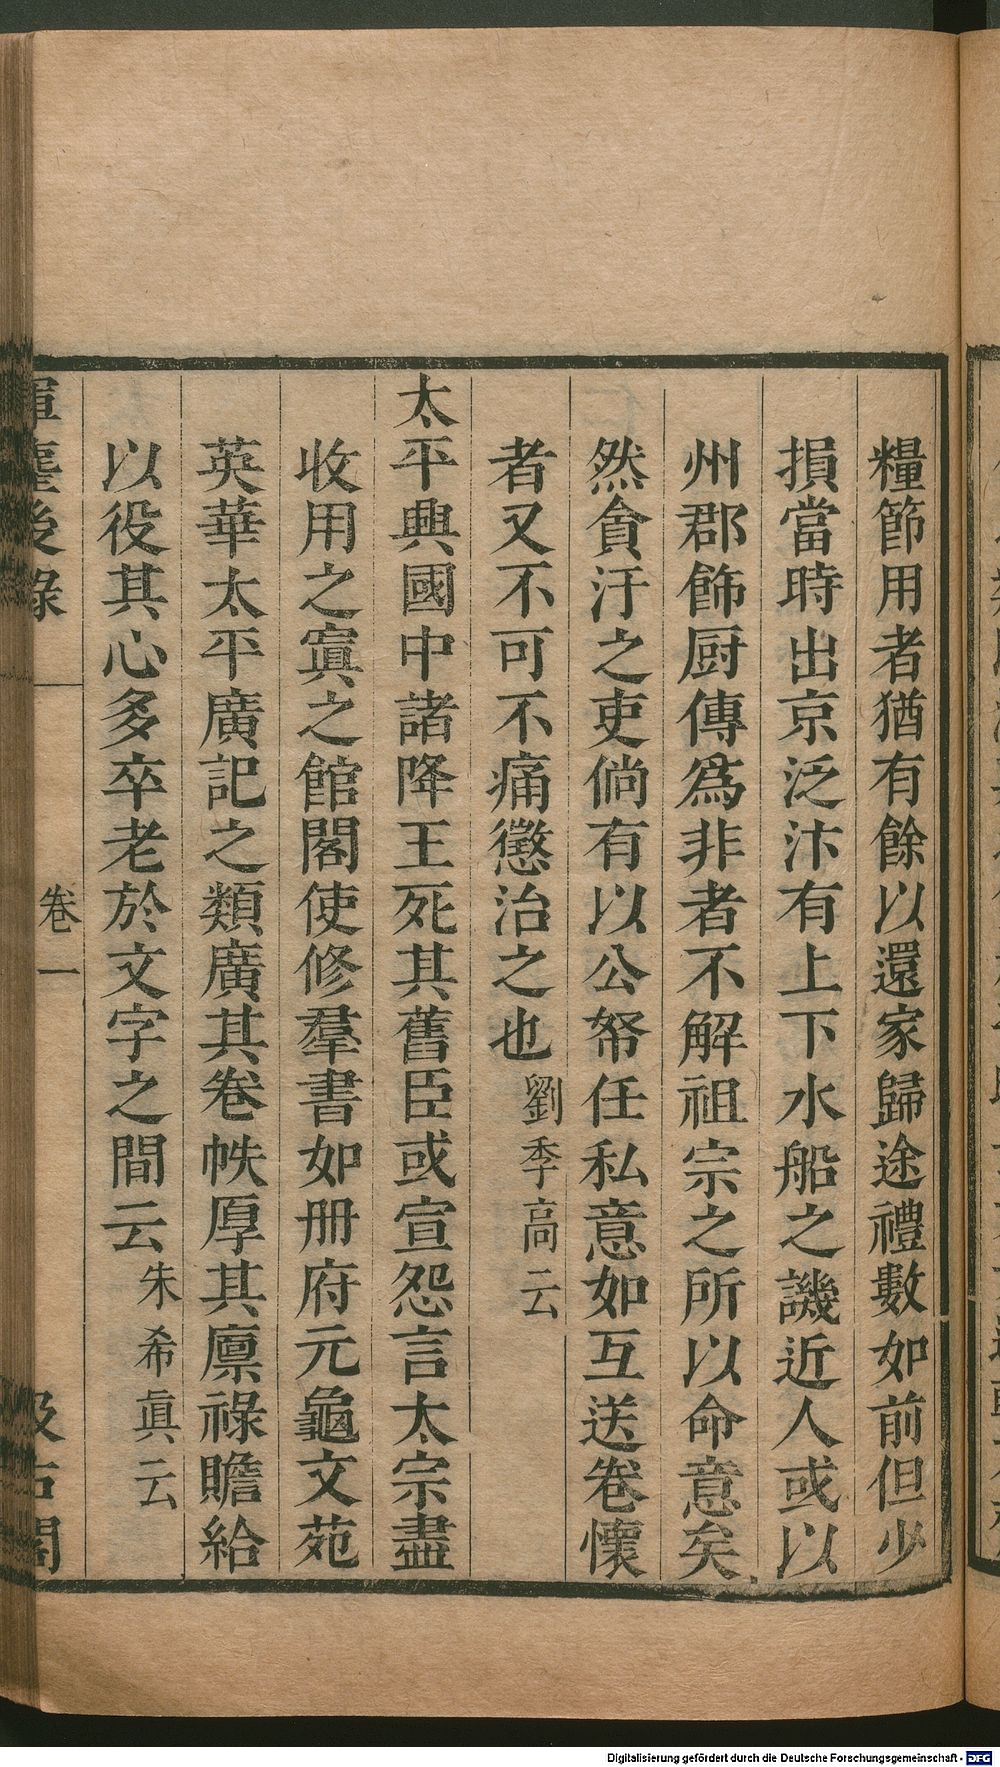 糧節用者猶有餘以還家歸途禮數如前但少
損當時出京泛汴有上下水船之譏近人或以
州郡飾厨傳爲非者不解祖宗之所以命意矣
然貪汙之吏倘有以公帑任私意如互送卷懷
者又不可不痛懲治之也劉季高云
太平興國中諸降王死其舊臣或宣怨言太宗盡
收用之寘之館閣使修羣書如册府元龜文苑
英華太平廣記之類廣其卷帙厚其廪祿贍給
以役其心多卒老於文字之間云朱希眞云
揮麈後錄
卷一
汲古閣
Digitalisierung gefördert durch die Deutsche Forschungsgemeinschaft - DFG